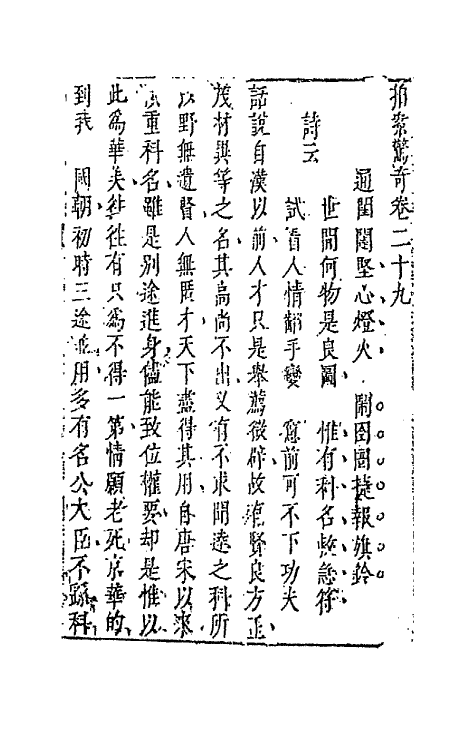 拍案驚奇卷二十九
通閨闥堅心燈火　鬧囹圄捷報旗鈴
詩云
世間何物是良圖　惟有科名救急符
試看人情翻手變　窻前可不下功夫
話說自漢以前人才只是舉薦徵辟故有賢良方正
茂材異等之名其高尚不出又有不求聞達之科所
以野無遺賢人無匿才天下盡得其用自唐宋以來
重科名雖是別途進身儘能致位權要却是惟以
此為華美往往有只為不得一第情願老死京華的
到我　國朝初時三途並用多有名公大臣不繇科